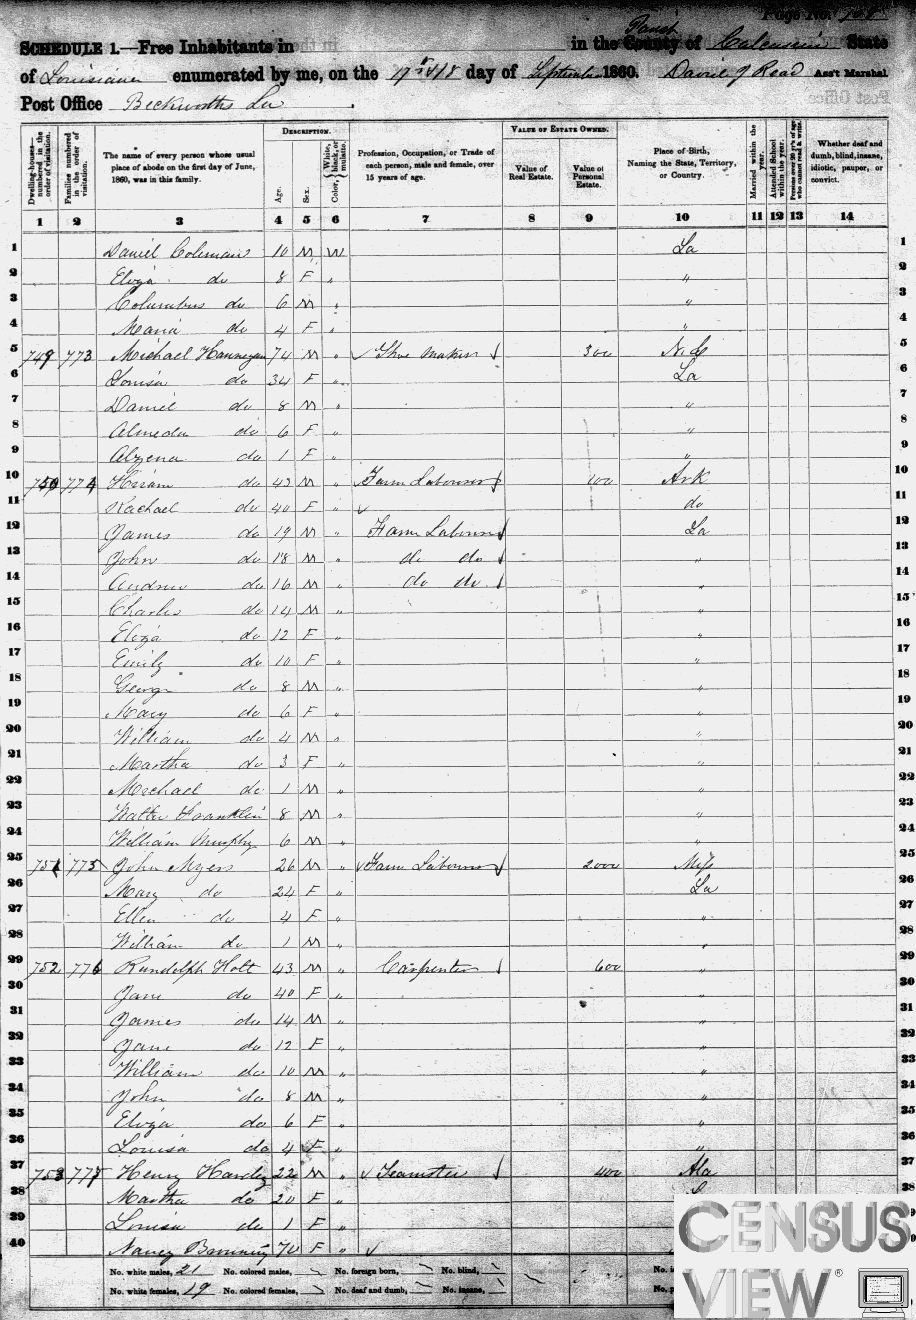 Page No.
SCHEDULE 1.—Free Inhabitants in in the County of Parish Calcasieu State
of Louisiana enumerated by me, on the 17th & 18 day of September 1860. David J Read Ass't Marshal
Post Office Beckworths La
Dwelling-houses—numbered in the order of visitation.
Families numbered in the order of visitation.
The name of every person whose usual place of abode on the first day of June, 1860, was in this family.
DESCRIPTION.
Age.
Sex.
Color, White, black, or mulatto.
Profession, Occupation, or Trade of each person, male and female, over 15 years of age.
VALUE OF ESTATE OWNED.
Value of Real Estate.
Value of Personal Estate.
Place of Birth, Naming the State, Territory, or Country.
Married within the year.
Attended School within the year.
Persons over 20 y'rs of age who cannot read & write.
Whether deaf and dumb, blind, insane, idiotic, pauper, or convict.
1 2 3 4 5 6 7 8 9 10 11 12 13 14
1 Daniel Coleman 10 M W La 1
2 Eliza do 8 F " " 2
3 Columbus do 6 M " " 3
4 Maria do 4 F " " 4
5 749 773 Michael Hannegan 74 M " Shoe Maker 300 N.C 5
6 Louisa do 34 F " La 6
7 Daniel do 8 M " " 7
8 Almeda do 6 F " " 8
9 Alzena do 1 F " " 9
10 750 774 Hiram do 43 M " Farm Labourer 100 Ark 10
11 Rachael do 40 F " do 11
12 James do 19 M " Farm Labourer La 12
13 John do 18 M " do do " 13
14 Andrew do 16 M " do do " 14
15 Charles do 14 M " " 15
16 Eliza do 12 F " " 16
17 Emily do 10 F " " 17
18 George do 8 M " " 18
19 Mary do 6 F " " 19
20 William do 4 M " " 20
21 Martha do 3 F " " 21
22 Michael do 1 M " " 22
23 Walter Franklin 8 M " " 23
24 William Murphy 6 M " " 24
25 751 775 John Myers 26 M " Farm Labourer 2000 Miss 25
26 Mary do 24 F " La 26
27 Ellen do 4 F " " 27
28 William do 1 M " " 28
29 752 776 Randolph Holt 43 M " Carpenter 600 " 29
30 Jane do 40 F " " 30
31 James do 14 M " " 31
32 Jane do 12 F " " 32
33 William do 10 M " " 33
34 John do 8 M " " 34
35 Eliza do 6 F " " 35
36 Louisa do 4 F " " 36
37 753 777 Henry Hardy 22 M " Teamster 400 Ala 37
38 Martha do 20 F " 38
39 Louisa do 1 F "
40 Nancy Browning 70 F "
No. white males, 21 No. colored males, No. foreign born, No. blind,
No. white females, 19 No. colored females, No. deaf and dumb, No. insane,
CENSUS
VIEW ®